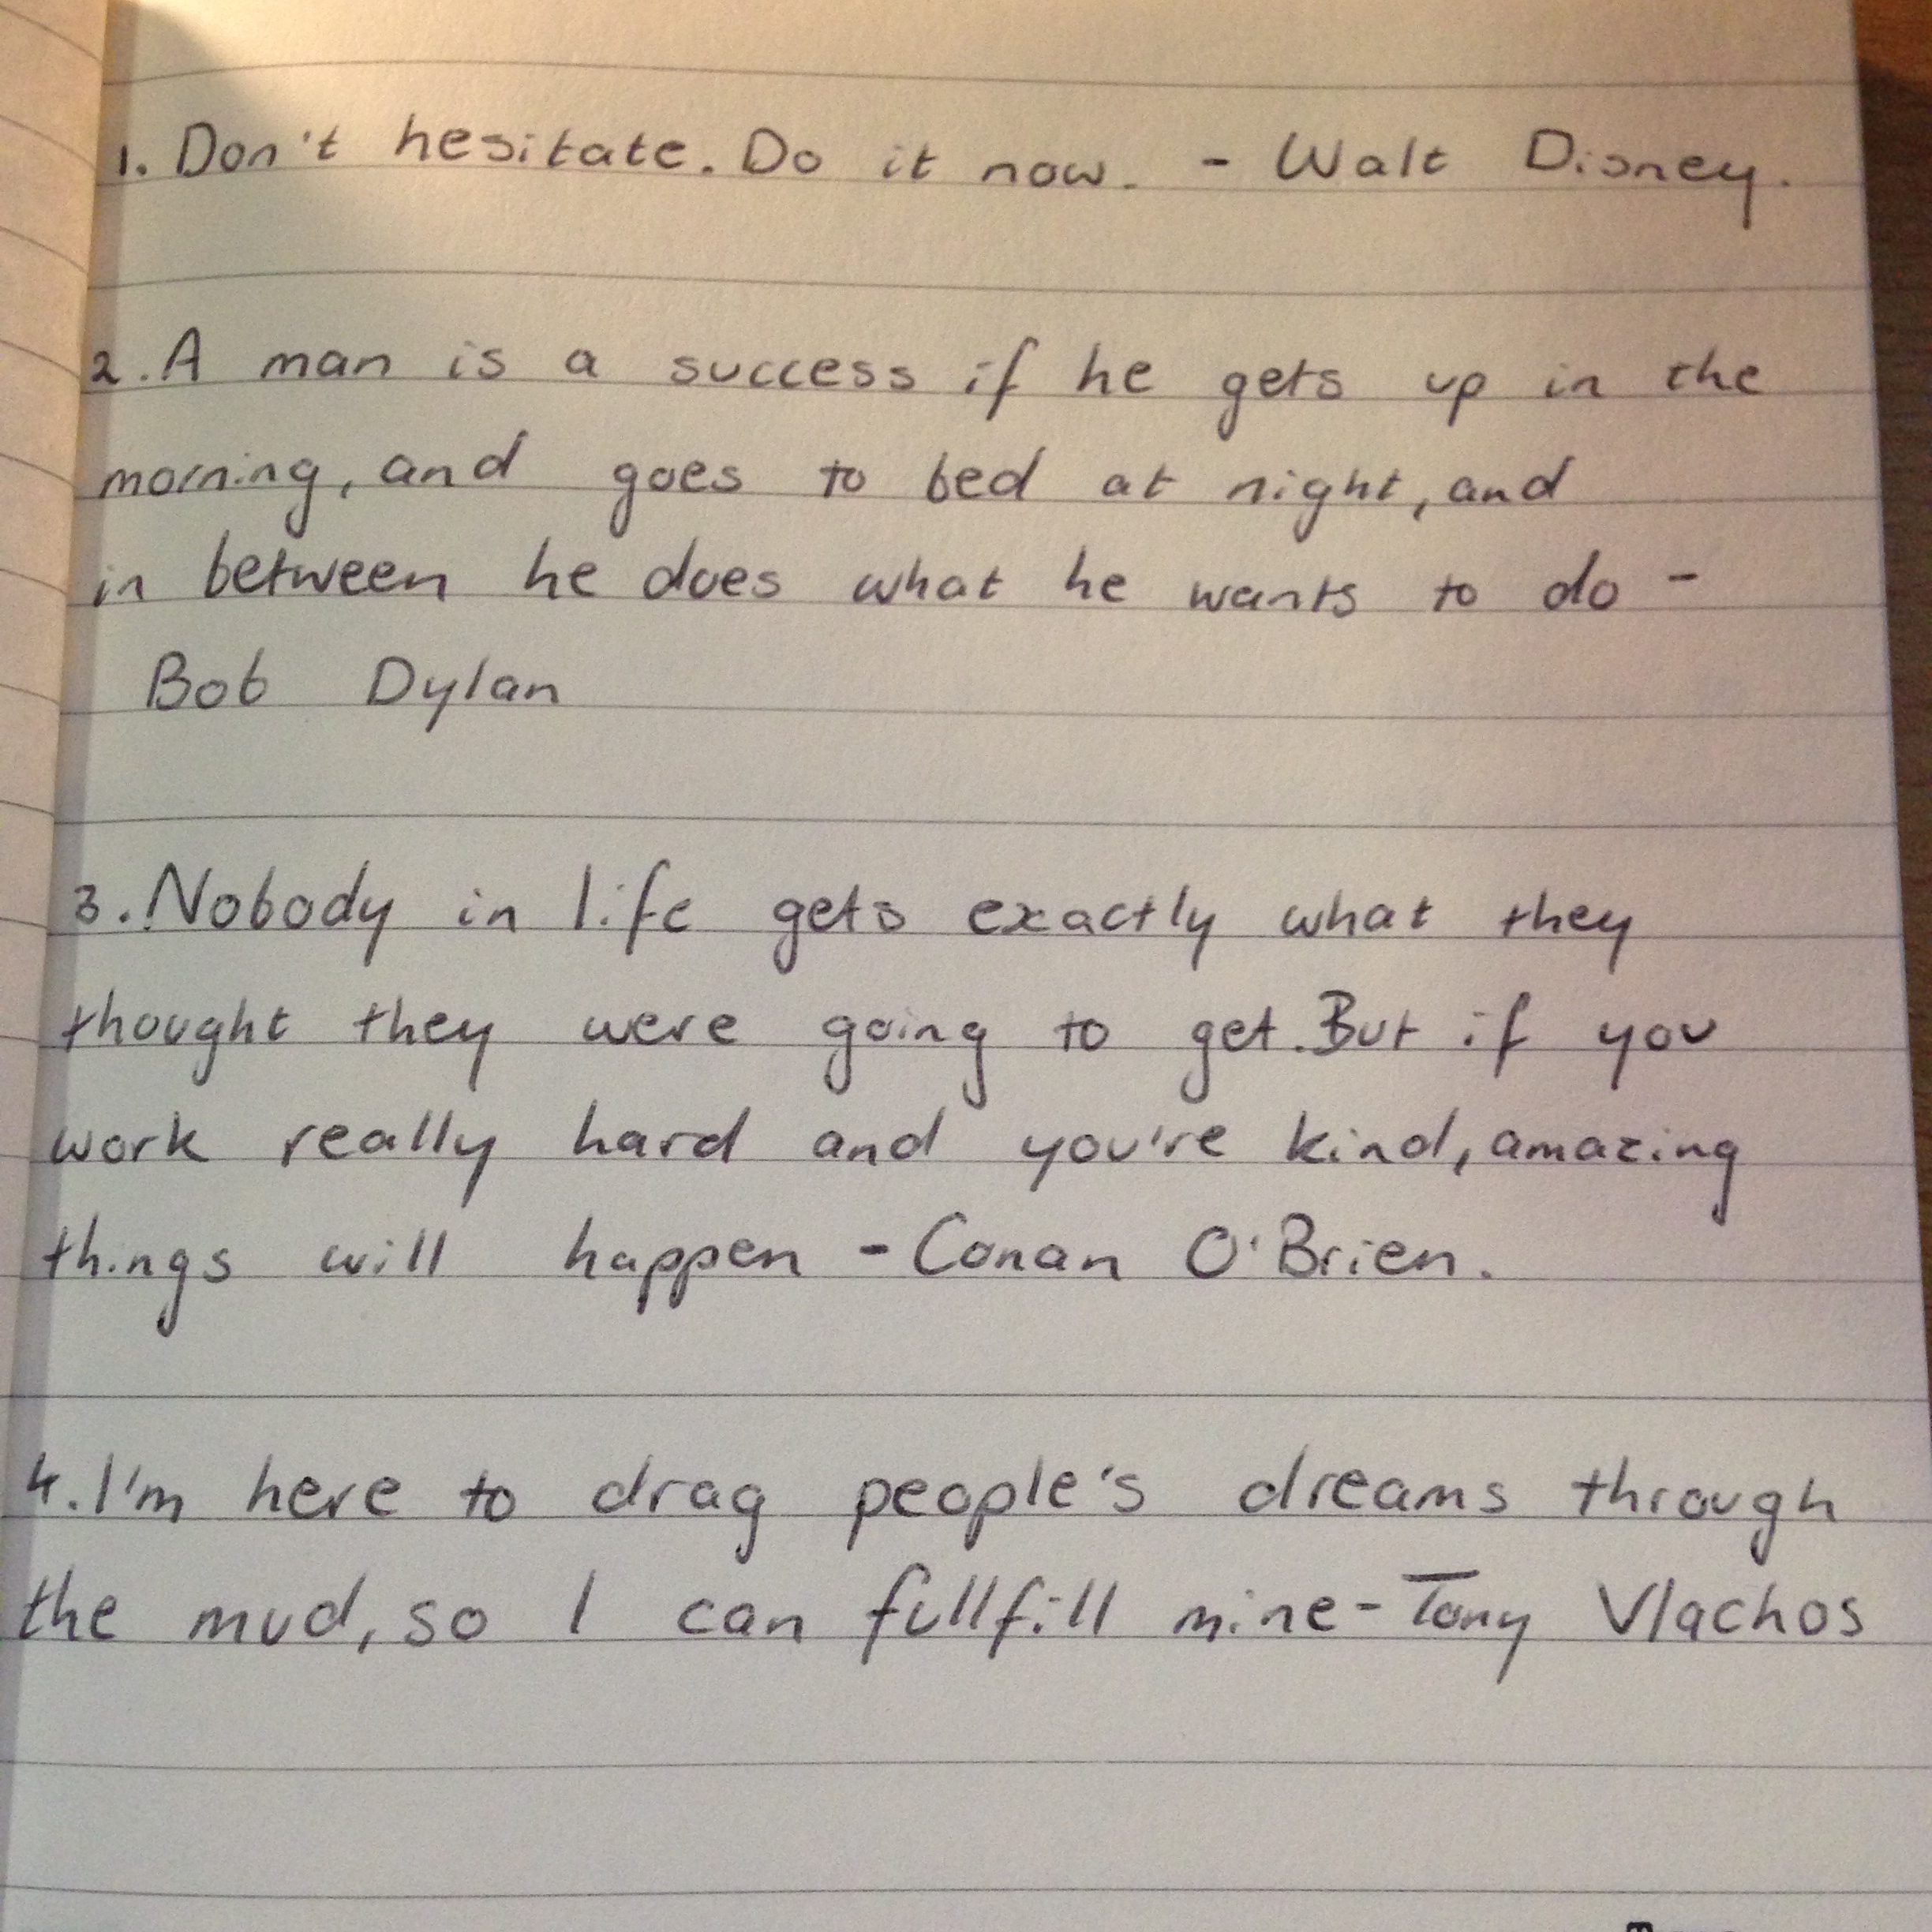 1. Don't hesitate. Do it now. - Walt Disney.
2. A man is a success if he gets up in the
morning, and goes to bed at night, and
in between he does what he wants to do -
Bob Dylan
3. Nobody in life gets exactly what they
thought they were going to get. But if you
work really hard and you're kind, amazing
things will happen - Conan O'Brien.
4. I'm here to drag people's dreams through
the mud, so I can fullfill mine - Tony Vlachos